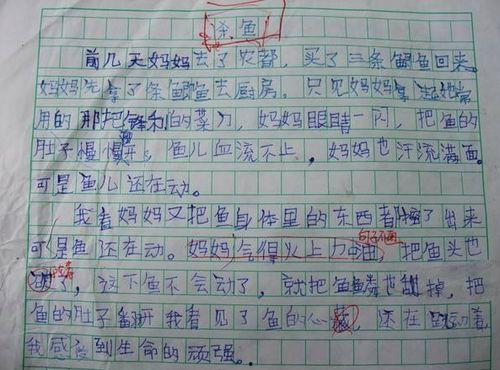 杀鱼
前几天妈妈去了农都，买了三条鲫鱼回来。
妈妈先拿了条鲫鱼去厨房。只见妈妈拿起她常
用的那把锋利的菜刀，妈妈眼睛一闪，把鱼的
肚子慢慢开，鱼儿血流不止，妈妈也汗流满面。
可是鱼儿还在动。
我看妈妈又把鱼身体里的东西都了出来
可是鱼还在动。妈妈气得火上力油 把鱼头也
句子不通
了，这下鱼不会动了，就把鱼鳞也掉，把
鱼的肚子翻开我看见了鱼的心，还在动着，
我感到生命的顽强。